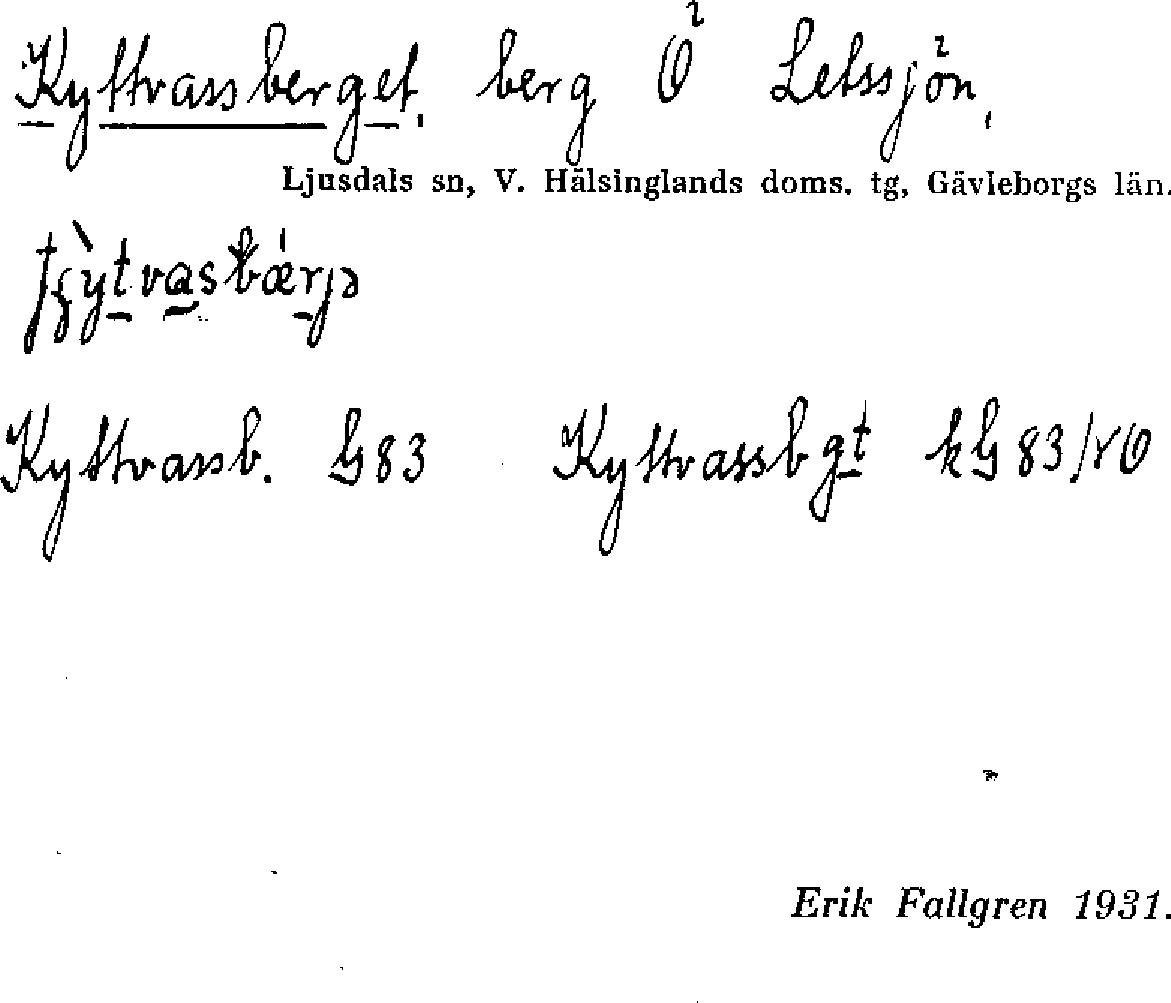 Kyttvassberget, berg Ö Letssjön,
Ljusdals sn, V. Hälsinglands doms. tg, Gävleborgs län.
Kyttvassb. G83 Kyttvassbgt kG83/VO
Erik Fallgren 1931.